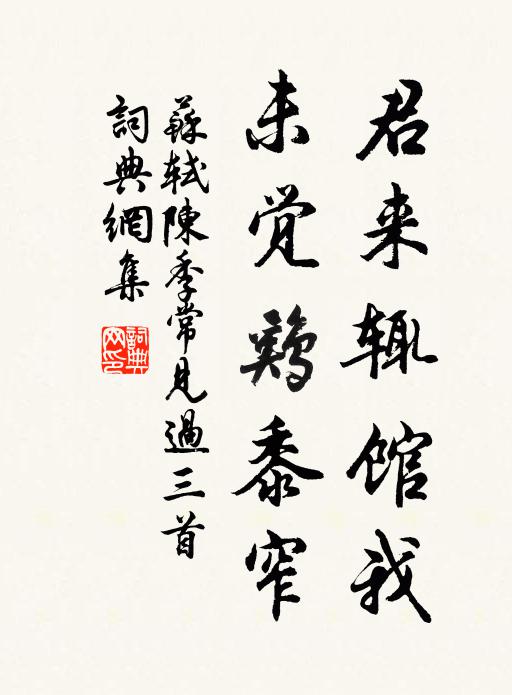 君来辄馆我
未觉鸡黍窄
蘇軾陳季常見過三首
詞典網集
詞典网印